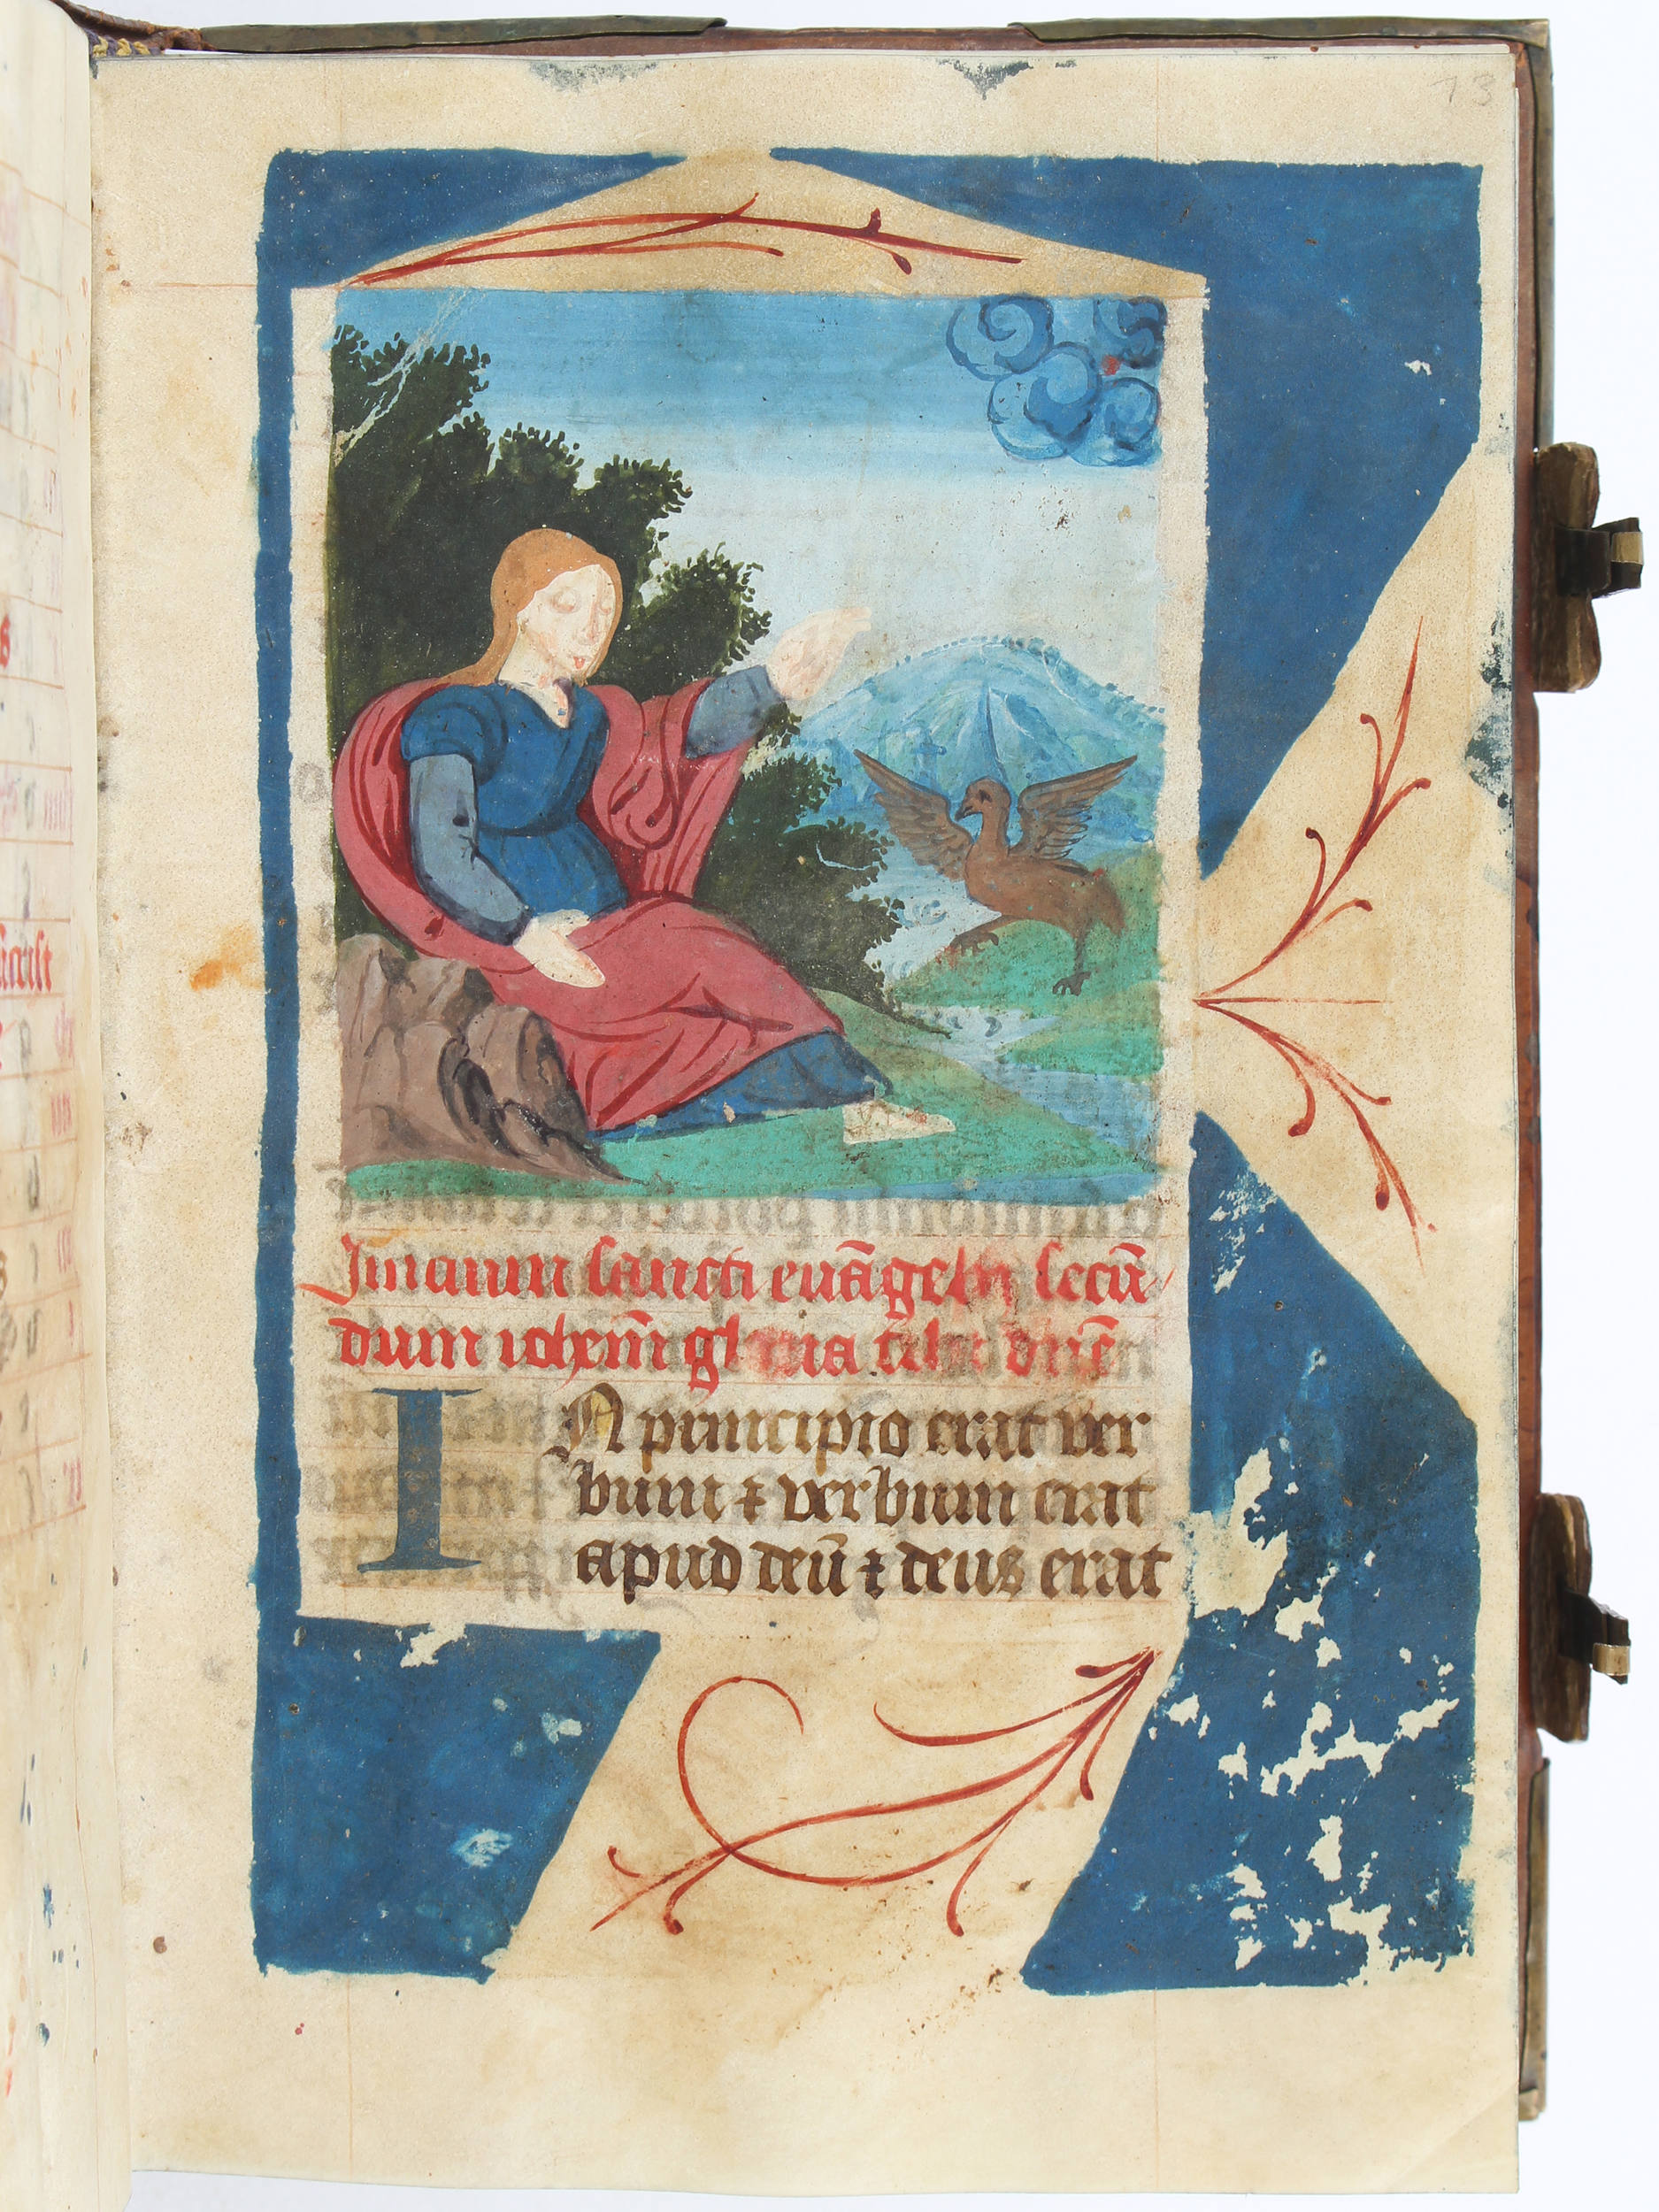 13
Iniciun sancti euāgelii secū
dum iohem̄ gloria tibi dn̄e
IN principio erat ver
bum ⁊ verbum erat
apud deū ⁊ deus erat